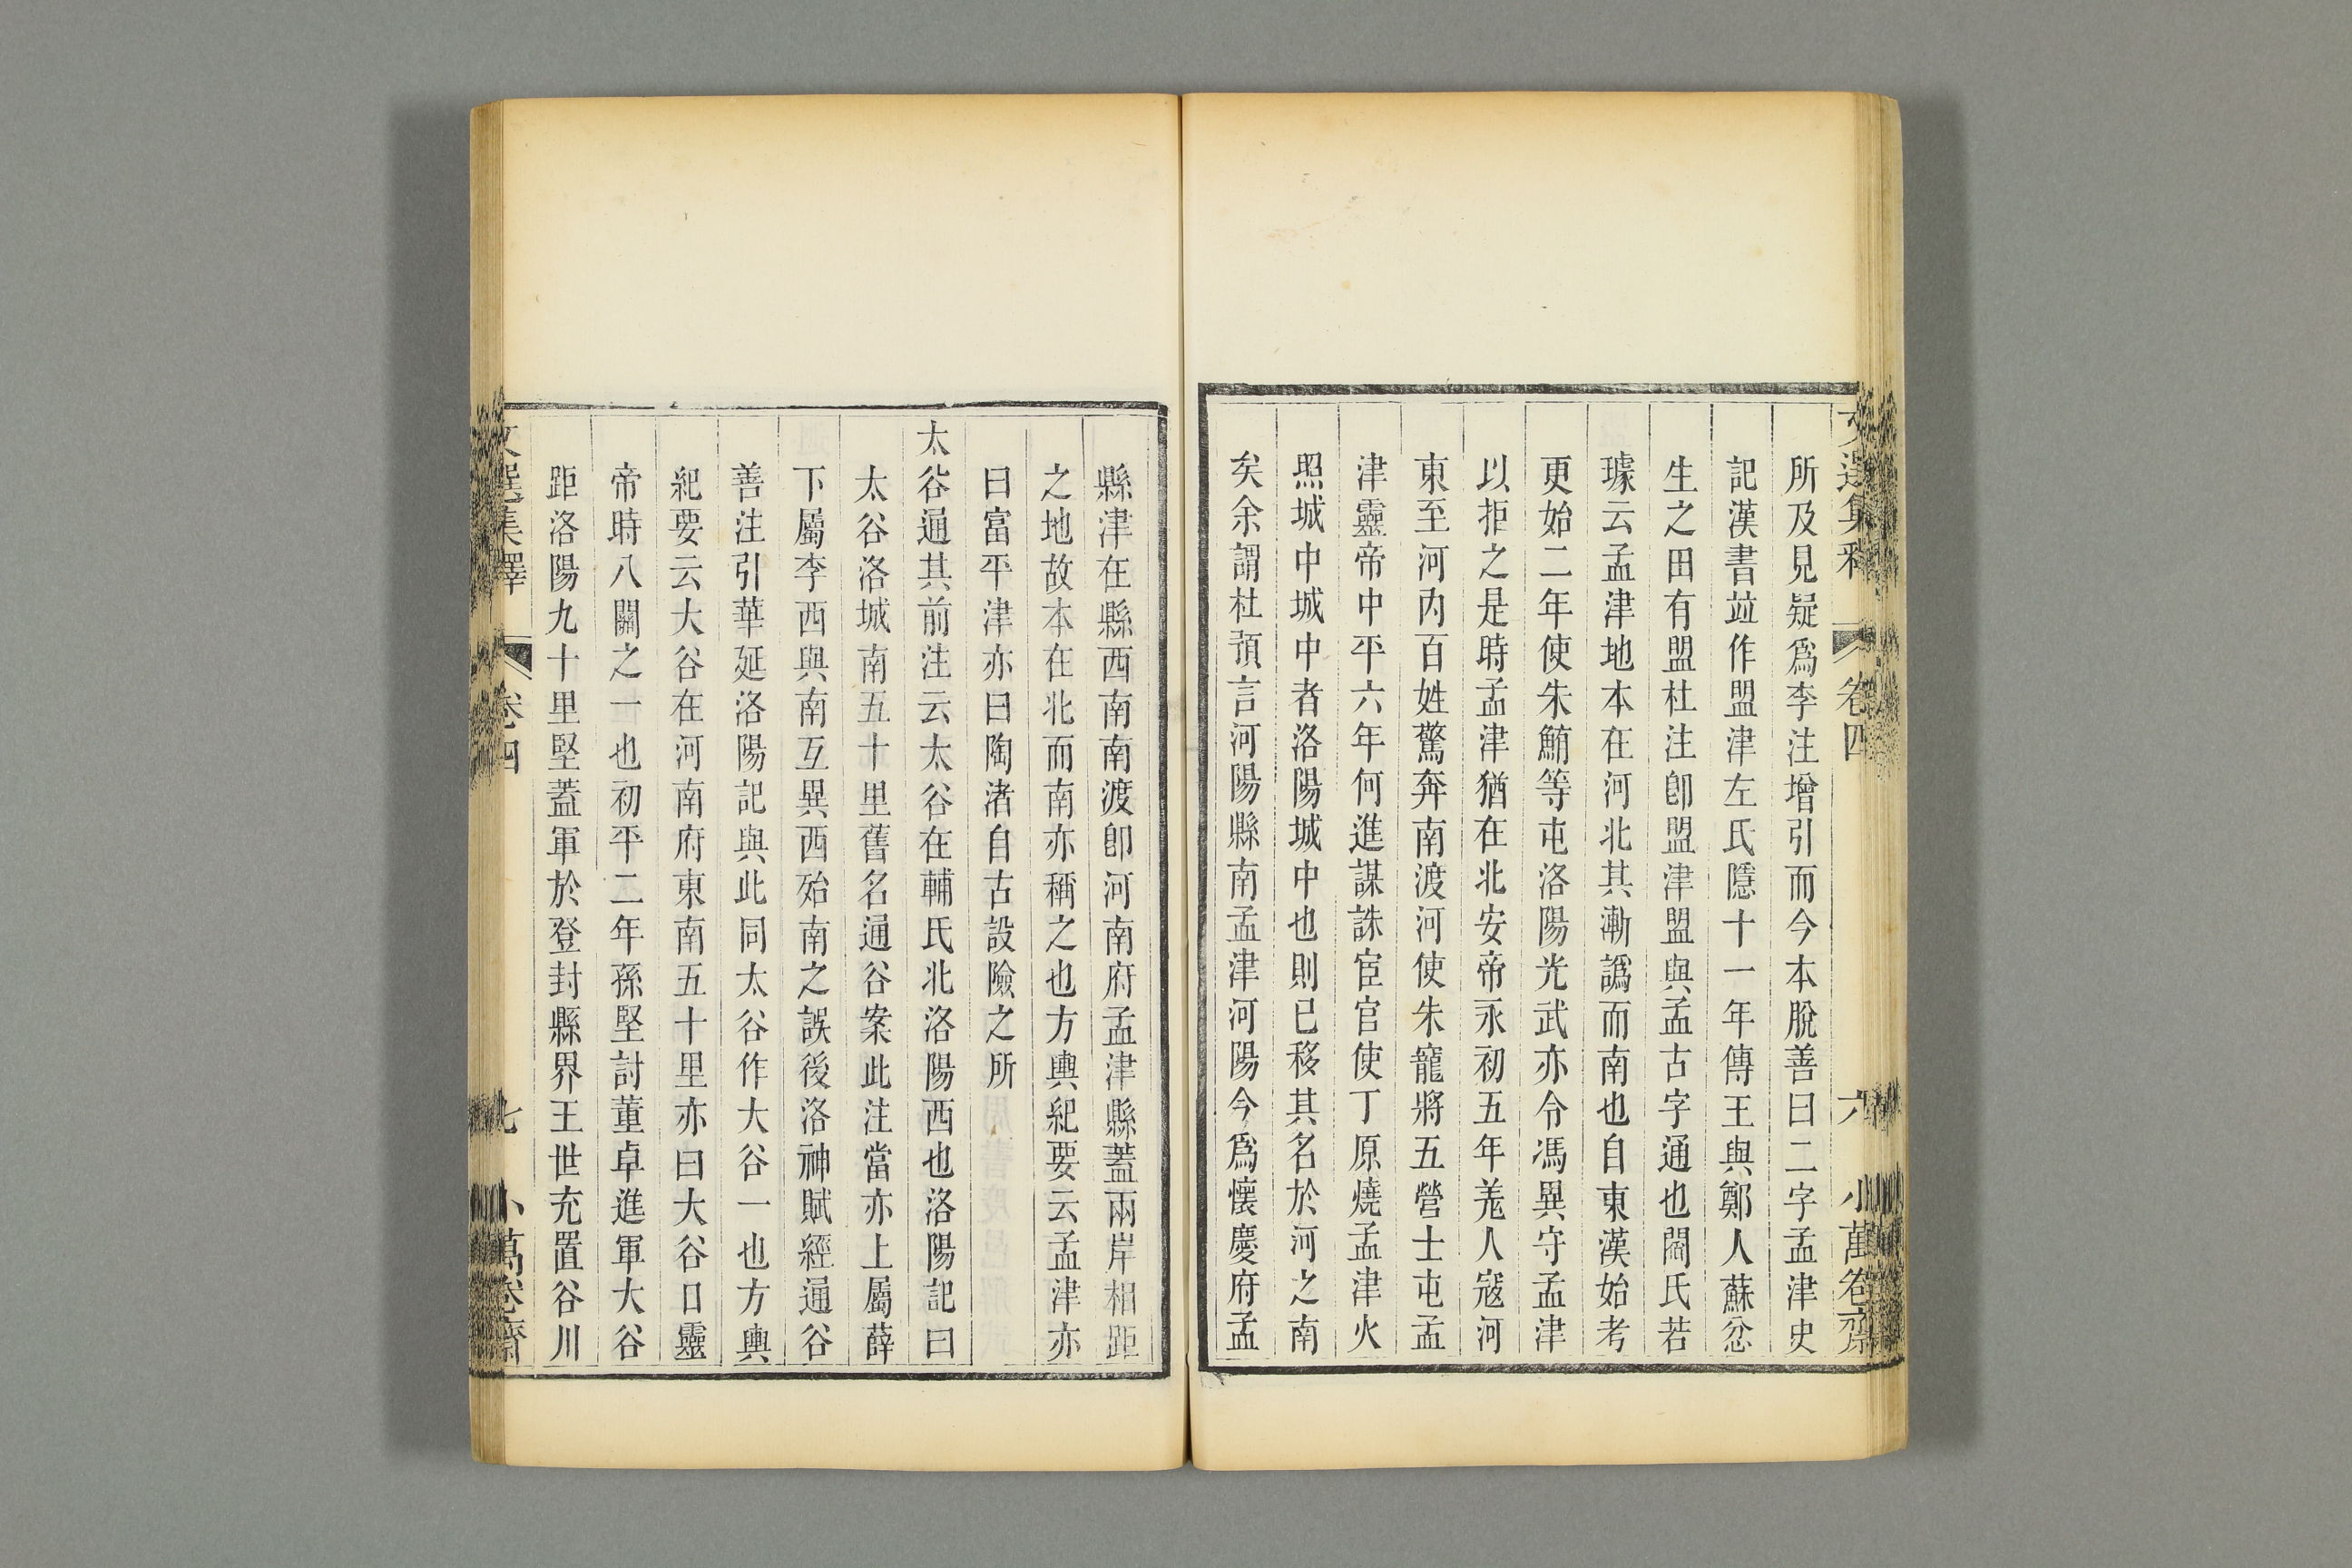 文選集釋 卷四 六 小萬卷齋
所及見疑爲李注增引而今本脫善曰二字孟津史
記漢書竝作盟津左氏隱十一年傳王與鄭人蘇忿
生之田有盟杜注卽盟津盟與孟古字通也閻氏若
璩云孟津地本在河北其漸譌而南也自東漢始考
更始二年使朱鮪等屯洛陽光武亦令馮異守孟津
以拒之是時孟津猶在北安帝永初五年羗人寇河
東至河內百姓驚奔南渡河使朱寵將五營士屯孟
津靈帝中平六年何進謀誅宦官使丁原燒孟津火
照城中城中者洛陽城中也則已移其名於河之南
矣余謂杜預言河陽縣南孟津河陽今爲懷慶府孟
縣津在縣西南南渡卽河南府孟津縣蓋兩岸相距
之地故本在北而南亦稱之也方輿紀要云孟津亦
曰富平津亦曰陶渚自古設險之所
太谷通其前注云太谷在輔氏北洛陽西也洛陽記曰
太谷洛城南五十里舊名通谷案此注當亦上屬薛
下屬李西與南互異西殆南之誤後洛神賦經通谷
善注引華延洛陽記與此同太谷作大谷一也方輿
紀要云大谷在河南府東南五十里亦曰大谷口靈
帝時八關之一也初平二年孫堅討董卓進軍大谷
距洛陽九十里堅蓋軍於登封縣界王世充置谷川
文選集釋 卷四 七 小萬卷齋